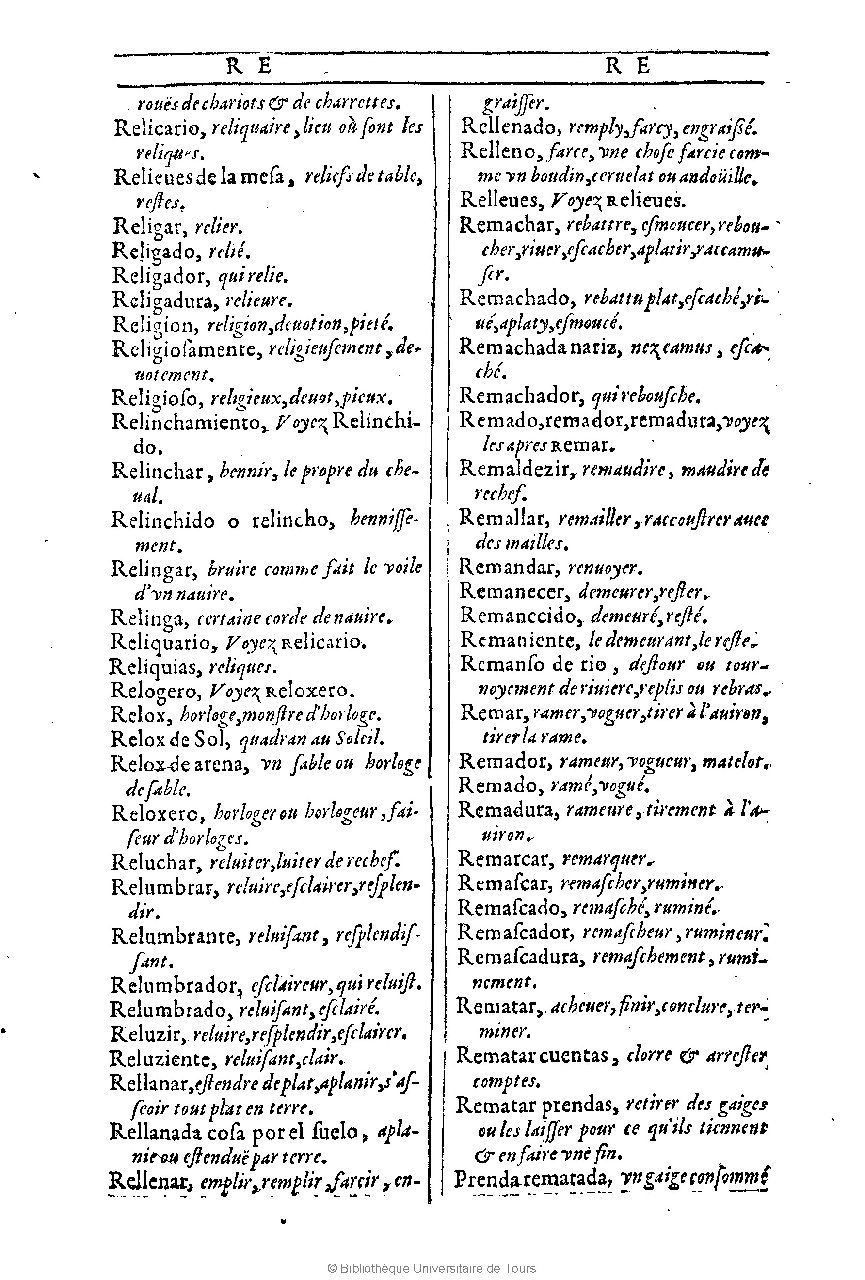 R E
R E
roués de chariots & de charrettes.
Relicario, reliquaire, lieu où sont les
reliques.
Relieues de la mesa, reliefs de table,
restes.
Religar, relier.
Religado, relié.
Religador, qui relie.
Religadura, relieure.
Religion, religion, deuotion, pieté.
Religioſamente, religieuſement, de-
uotement.
Religioſo, religieux, deuot, pieux.
Relinchamiento, Voyez Relinchi-
do.
Relinchar, hennir, le propre du che-
ual.
Relinchido o relincho, henniſſe-
ment.
Relingar, bruire comme fait le voile
d'vn nauire.
Relinga, certaine corde de nauire.
Reliquario, Voyez Relicario.
Reliquias, reliques.
Relogero, Voyez Reloxero.
Relox, horloge, monſtre d'horloge.
Relox de Sol, quadran au Soleil.
Relox de arena, vn ſable ou horloge
de ſable.
Reloxero, horloger ou horlogeur, fai-
ſeur d'horloges.
Reluchar, reluiter, luiter de rechef.
Relumbrar, reluire, eſclairer, reſplen-
dir.
Relumbrante, reluiſant, reſplendiſ-
ſant.
Relumbrador, eſclaireur, qui reluiſt.
Relumbrado, reluiſant, eſclairé.
Reluzir, reluire, reſplendir, eſclairer.
Reluziente, reluiſant, clair.
Rellanar, eſtendre de plat, aplanir, s'aſ-
ſeoir tout plat en terre.
Rellanada coſa por el ſuelo, apla-
nie ou eſtenduë par terre.
Rellenar, emplir, remplir, farcir, en-
graiſſer.
Rellenado, remply, farcy, engraiſſé.
Relleno, farce, vne choſe farcie com-
me vn boudin, ceruelat ou andoüille.
Relleues, Voyez Relieues.
Remachar, rebattre, eſmoucer, rebou-
cher, riuer, eſcacher, aplatir, raccamu-
ſer.
Remachado, rebattu plat, eſcaché, ri-
ué, aplaty, eſmoucé.
Remachada nariz, nez camus, eſca-
ché.
Remachador, qui rebouſche.
Remado, remador, remadura, voyez
les apres Remar.
Remaldezir, remaudire, maudire de
rechef.
Remallar, remailler, raccouſtrer auec
des mailles.
Remandar, renuoyer.
Remanecer, demeurer, reſter.
Remanecido, demeuré, reſté.
Remaniente, le demeurant, le reſte.
Remanſo de rio, deſtour ou tour-
noyement de riuiere, replis ou rebras.
Remar, ramer, voguer, tirer à l'auiron,
tirer la rame.
Remador, rameur, vogueur, matelot.
Remado, ramé, vogué.
Remadura, rameure, tirement à l'a-
uiron.
Remarcar, remarquer.
Remaſcar, remaſcher, ruminer.
Remaſcado, remaſché, ruminé.
Remaſcador, remaſcheur, rumineur.
Remaſcadura, remaſchement, rumi-
nement.
Rematar, acheuer, finir, conclure, ter-
miner.
Rematar cuentas, clorre & arreſter
comptes.
Rematar prendas, retirer des gaiges
ou les laiſſer pour ce qu'ils tiennent
& en faire vne fin.
Prenda rematada, vn gaige conſommé
© Bibliothèque Universitaire de Tours